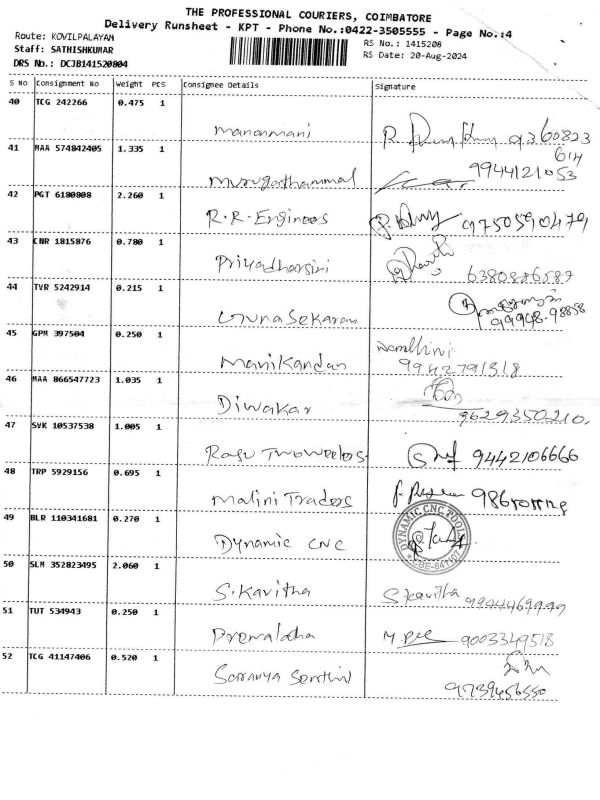 THE PROFESSIONAL COURIERS, COIMBATORE
Delivery Runsheet - KPT - Phone No.:0422-3505555 - Page No.:4
Route: KOVILPALAYAM
Staff: SATHISHKUMAR
DRS No.: DCJB141520804
RS No.: 1415208
RS Date: 20-Aug-2024
S No Consignment No Weight PCS Consignee Details Signature
40 TCG 242266 0.475 1
Manonmani 9360823
614
41 MAA 574842405 1.335 1
Murugathammal 9944121053
42 PGT 6180808 2.260 1
R.R-Engineers 9750590479
43 CNR 1815876 0.780 1
Priyadharsini 6380886587
44 TVR 5242914 0.215 1
Gunasekaran 99948-98858
45 GPM 397504 0.250 1
Manikandan 9942791318
46 MAA 866547723 1.035 1
Diwakar 9629350210.
47 SVK 10537538 1.005 1
Raju Twoweelers 9442106666
48 TRP 5929156 0.695 1
Malini Traders
49 BLR 110341681 0.270 1
Dynamic CNC
DYNAMIC CNC TOOLS
CBE-641107
50 SLM 352823495 2.060 1
S.Kavitha S.Kavitha
51 TUT 534943 0.250 1
Premalatha 9003349518
52 TCG 41147406 0.520 1
Saranya Senthil 9739456550